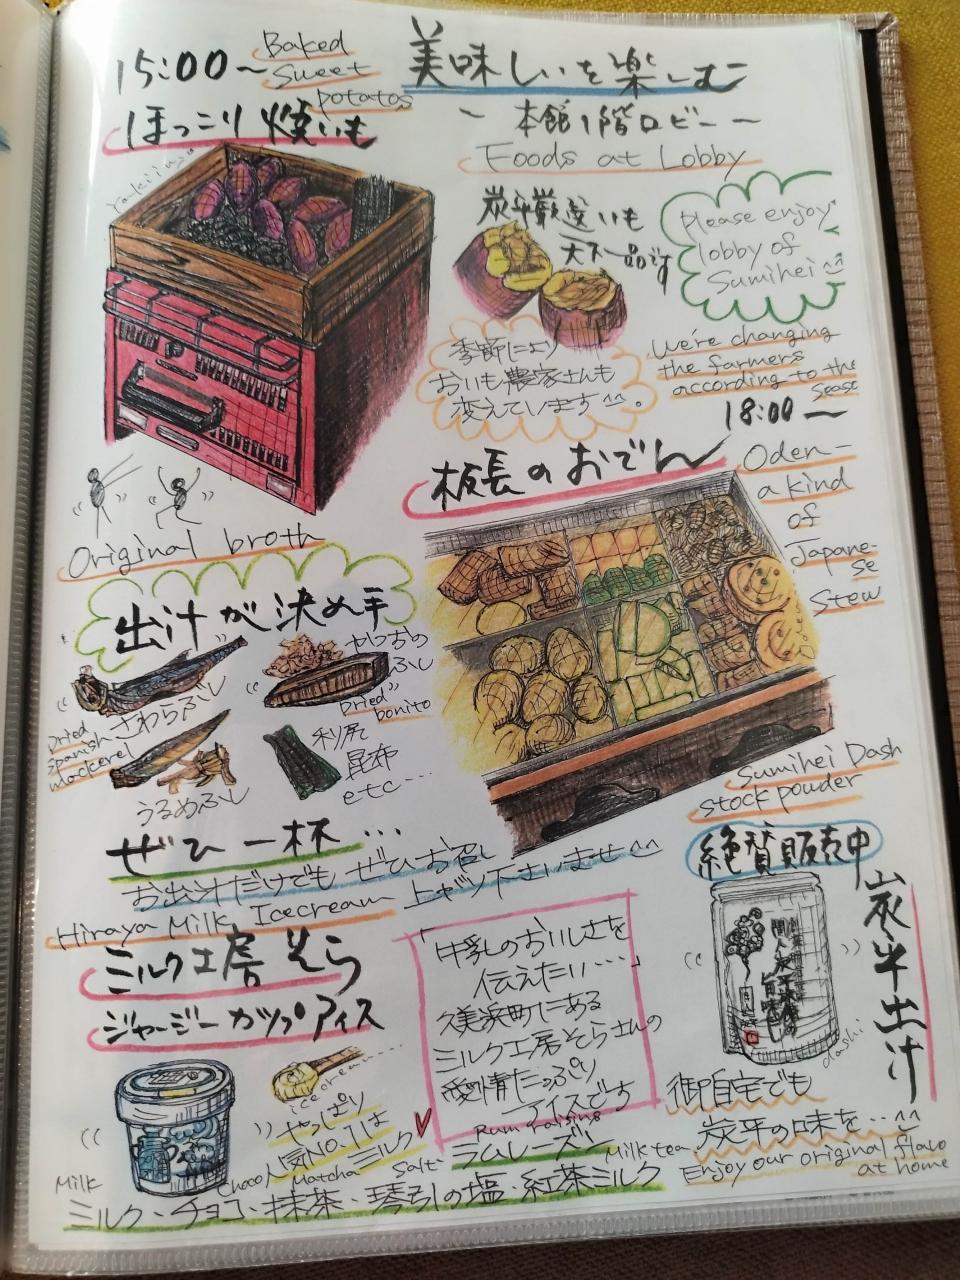 15:00〜
Baked
Sweet
potatos
ほっこり焼いも
Yakiimo
美味しいを楽しむ
〜 本館1階ロビー 〜
Foods at Lobby
炭平厳選いも
天下一品です
Please enjoy
lobby of
Sumihei
季節により
おいも農家さんも
変えています^^。
We're changing
the farmers
according to the
seas
18:00〜
板長のおでん
Oden-
a kind
of
Japane-
se
Stew
Original broth
出汁が決め手
さわらぶし
Dried
spanish
mackerel
かつお
ぶし
Dried
bonito
うるめぶし
利尻
昆布
etc....
ぜひ一杯...
お出汁だけでもぜひお召し
上がり下さいませ^^
Sumihei Dash
stock powder
絶賛販売中
炭平出汁
dashi
御自宅でも
炭平の味を...^^
Enjoy our original flavo
at home
Hiraya Milk Icecream
ミルク工房そら
ジャージーカップアイス
「牛乳のおいしさを
伝えたい...」
久美浜町にある
ミルク工房そらさんの
愛情たっぷり
アイスです
icecream....
やっぱり
人気NO.1は
ミルク
Rum raising
ラムレーズン
Milk
Choco
Matcha
Salt
Milk tea
ミルク・チョコ・抹茶・琴引の塩・紅茶ミルク